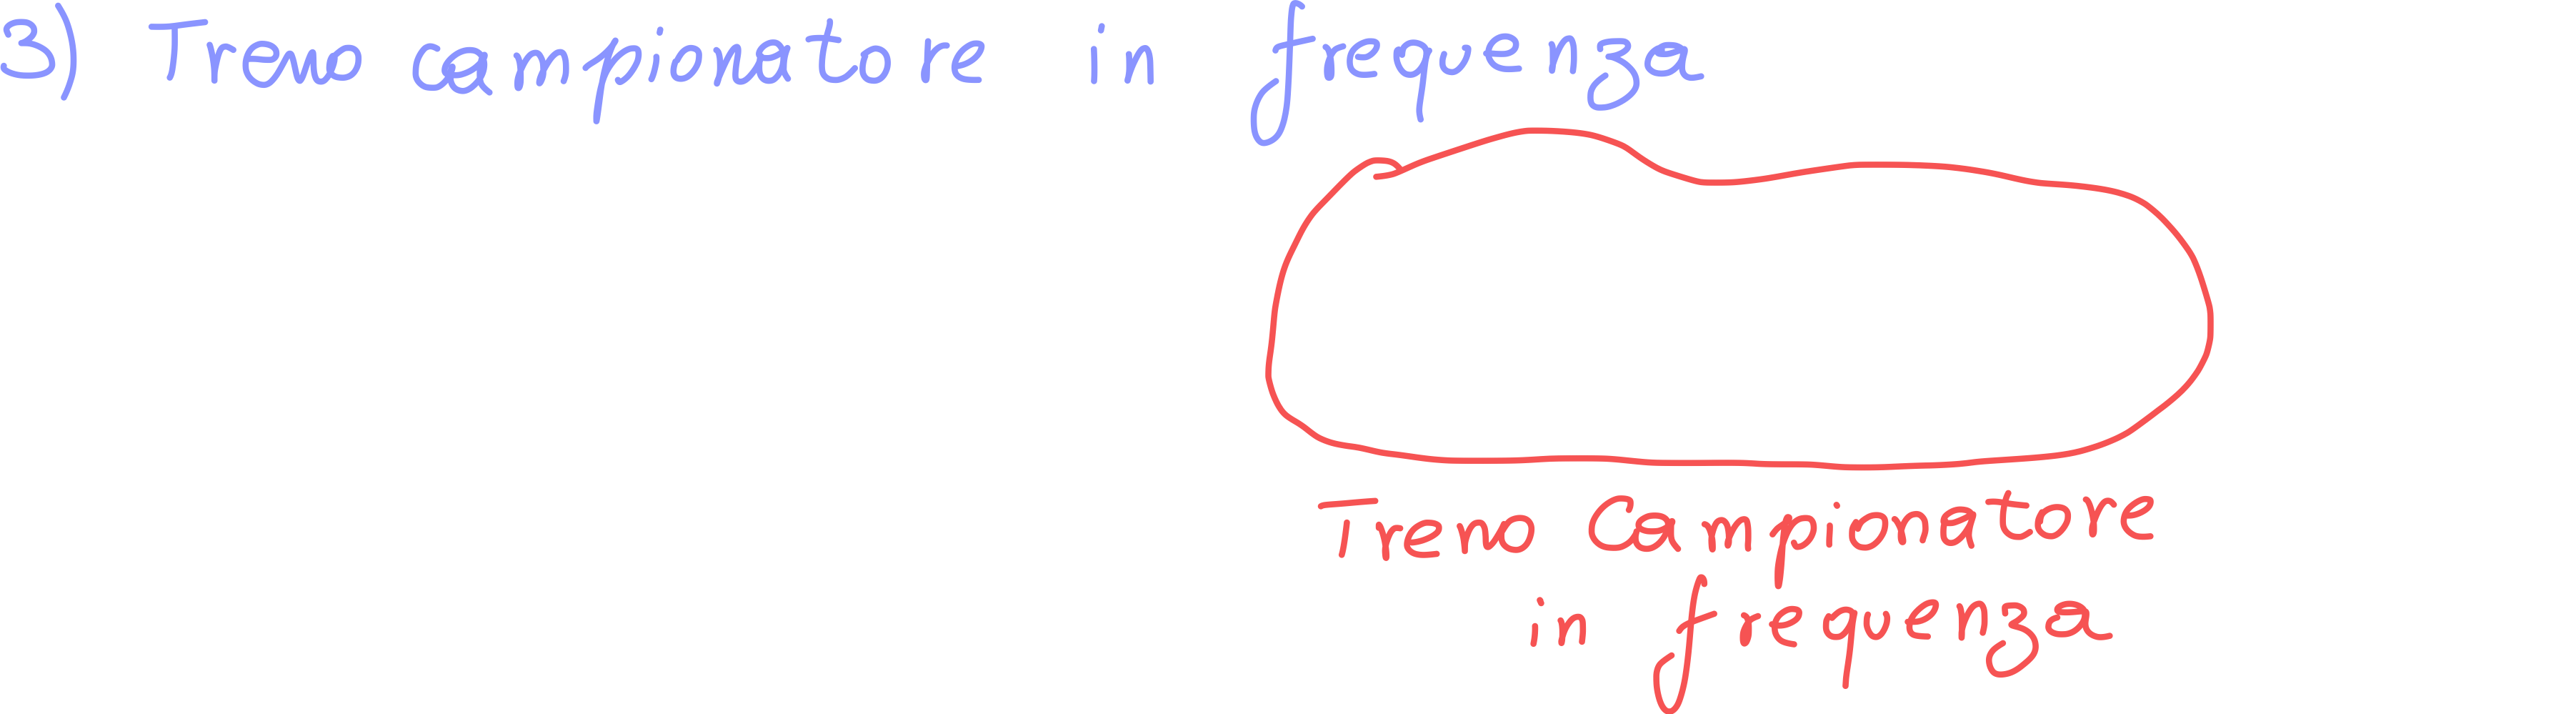 3) Treno campionatore in frequenza
Treno Campionatore
in frequenza